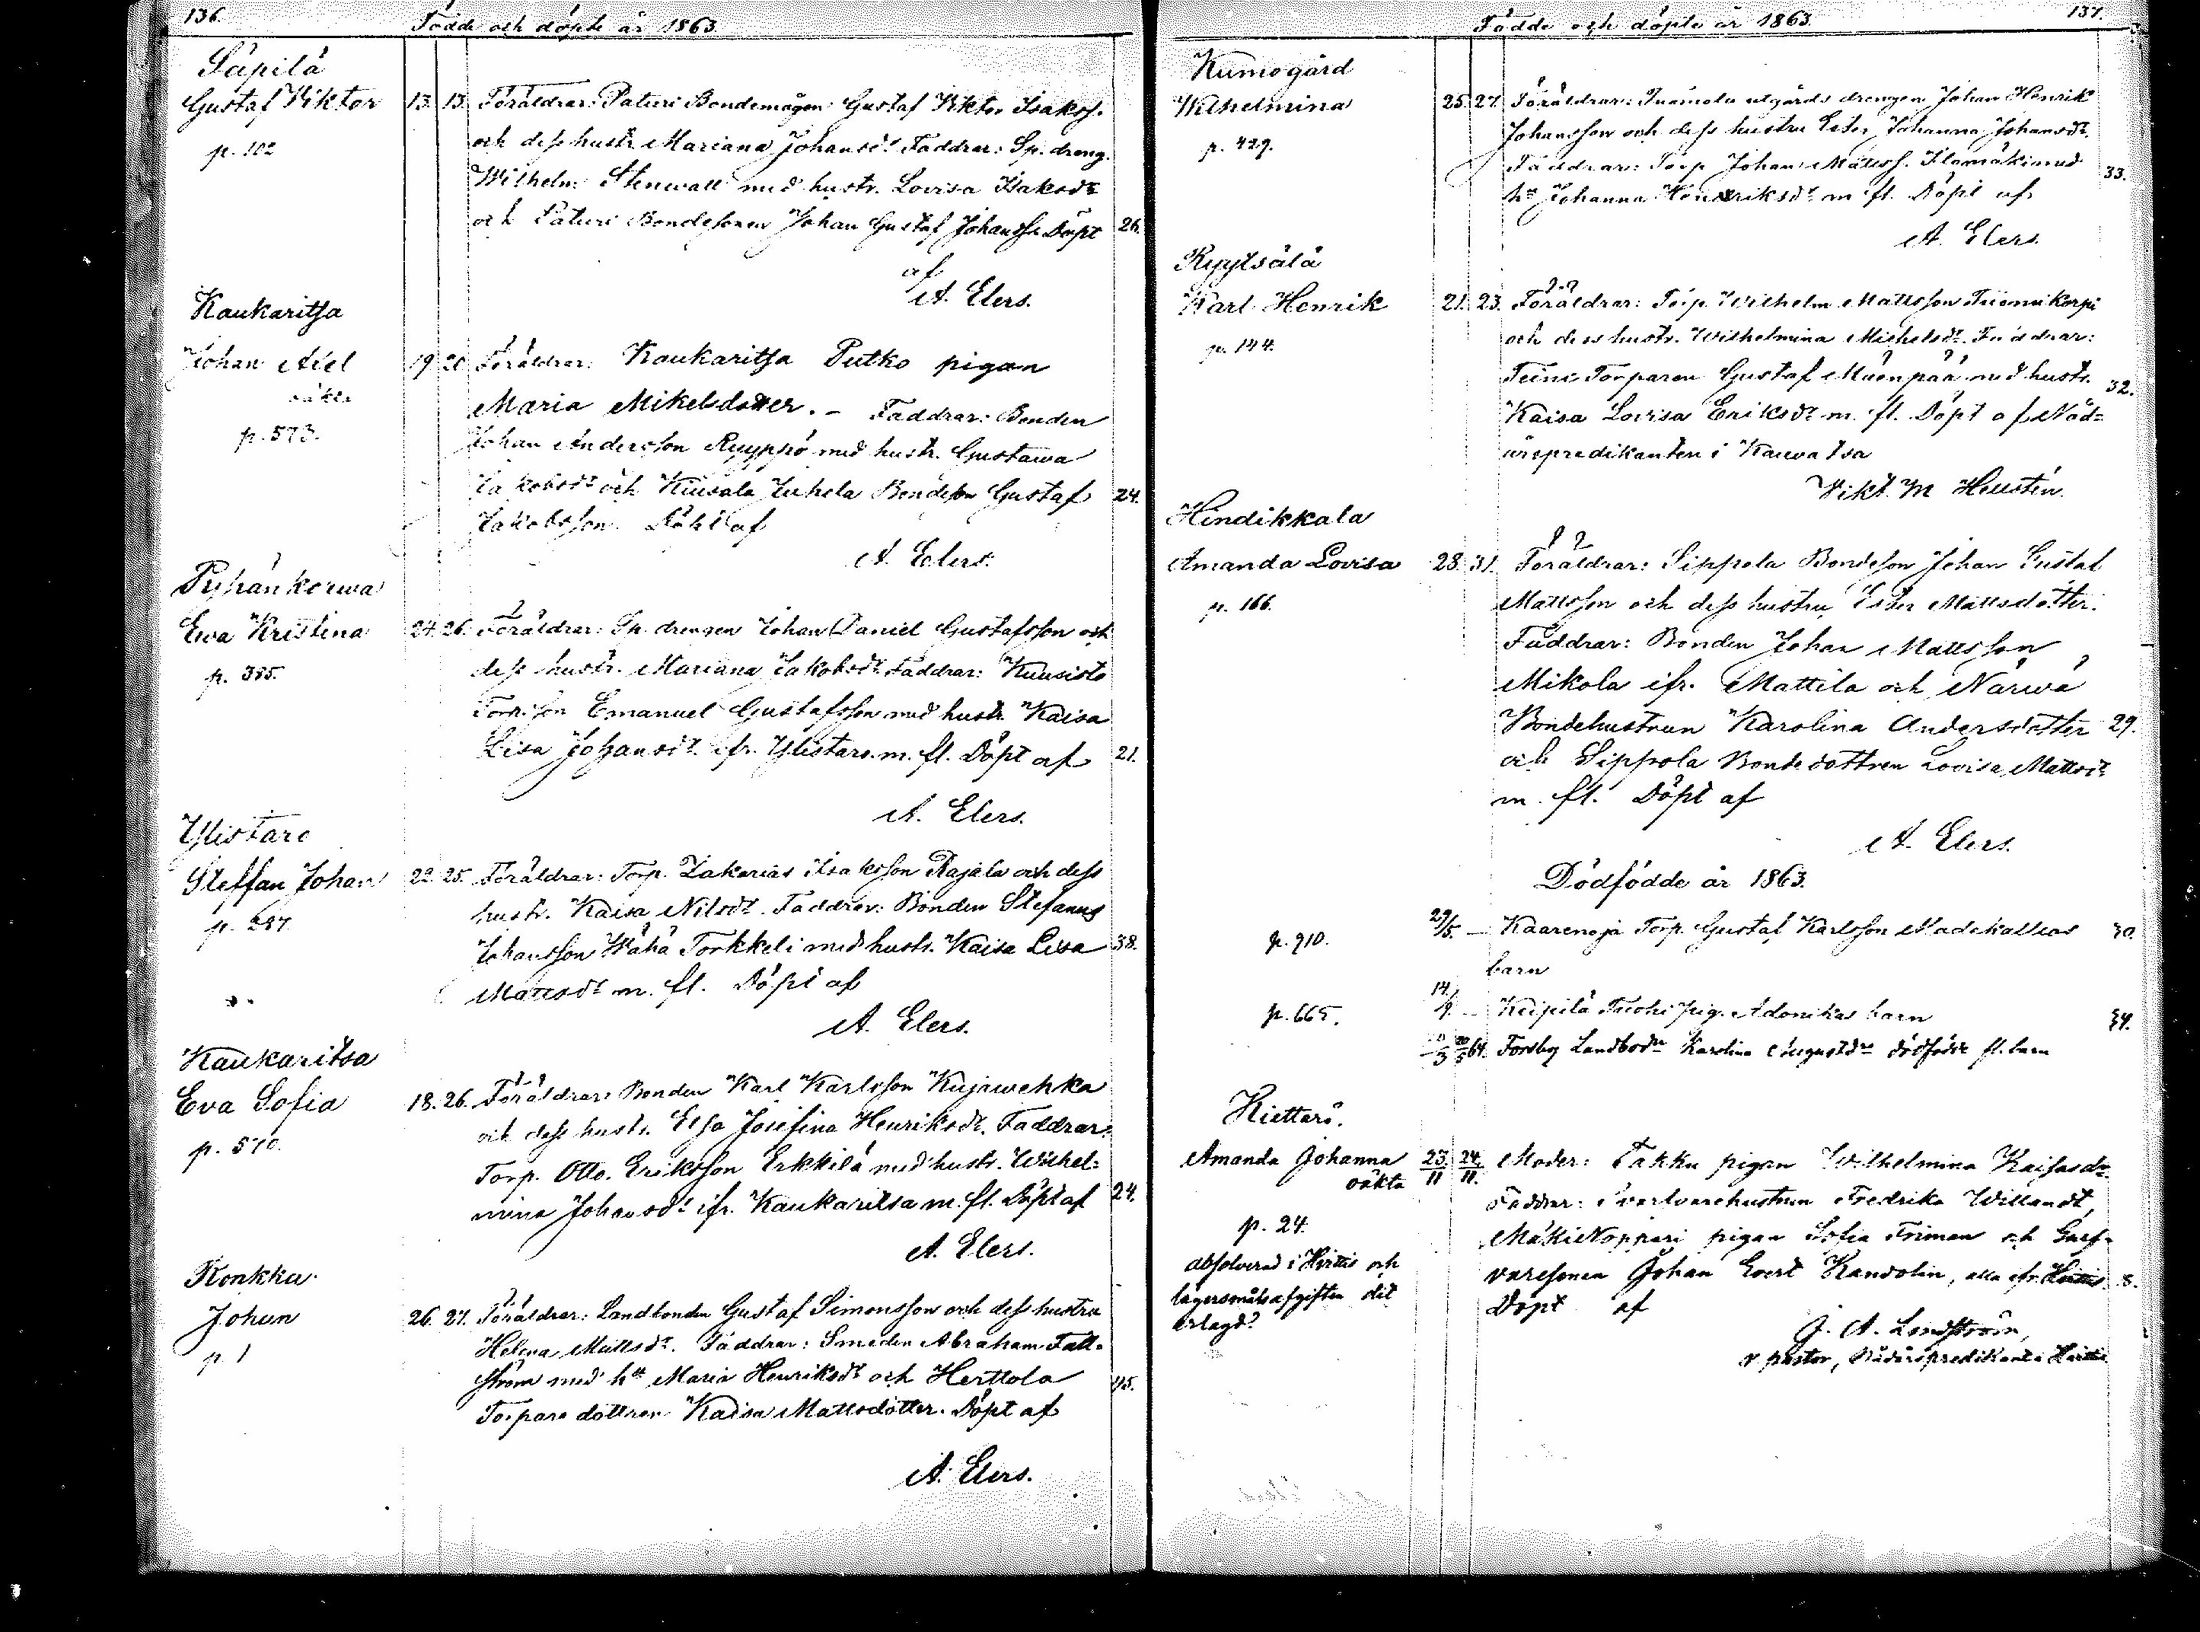 136.
Födde och döpte år 1863.
Säpilä
Gustaf Viktor 13. 15. Föräldrar: Paturi Bondemågen Gustaf Viktor Isakss.
p. 102 och dess hustr. Mariana Johansdr. Faddrar: Sp. dreng.
Wilhelm Stenwall med hustr. Lovisa Isaksdr
och Paturi Bondesonen Johan Gustaf Johanss. Döpt 26.
af
A. Elers.
Kaukaritsa
Johan Axel 19. 20. Föräldrar: Kaukaritsa Putko pigan
oäkta Maria Mikelsdotter. – Faddrar: Bonden
p. 573. Johan Andersson Ryyppö med hustr. Gustawa
Jakobsdr och Kiusala Juhela Bondeson Gustaf 24.
Jakobsson. Döpt af
A. Elers.
Pyhänkorwa
Ewa Kristina 24. 26. Föräldrar: Sp. drengen Johan Daniel Gustafsson och
p. 385. dess hustr. Mariana Jakobsdr. Faddrar: Kuusisto
Torp.son Emanuel Gustafsson med hustr. Kaisa
Lisa Johansdr. ifr. Ylistaro. m. fl. Döpt af 21.
A. Elers.
Ylistaro
Steffan Johan 22. 25. Föräldrar: Torp. Zakarias Isaksson Rajala och dess
p. 287. hustr. Kaisa Nilsdr. Faddrar: Bonden Stefanus
Johansson Wähä Torkkeli med hustr. Kaisa Lisa 38.
Mattsdr m. fl. Döpt af
A. Elers.
Kaukaritsa
Eva Sofia 18. 26. Föräldrar: Bonden Karl Karlsson Kujawehka
p. 570. och dess hustr. Elsa Josefina Henriksdr. Faddrar:
Torp. Otto Eriksson Erkkilä med hustr. Wilhel-
mina Johansdr ifr. Kaukaritsa m. fl. Döpt af 24.
A. Elers.
Konkka
Johan 26. 27. Föräldrar: Landbonden Gustaf Simonsson och dess hustru
p. 1 Helena Mattsdr. Faddrar: Smeden Abraham Fall-
ström med hu Maria Henriksdr och Herttola 45.
Torparedottren Kaisa Mattsdotter. Döpt af
A. Elers.
137.
Födde och döpte år 1863.
Kumogård
Wilhelmina 25. 27. Föräldrar: Tuomola utgårds drengen Johan Henrik
p. 429. Johansson och dess hustru Ester Johanna Johansdr.
Faddrar: Torp Johan Mattss. Ilomäki med 33.
hu Johanna Hendriksdr m fl. Döpt af
A. Elers.
Ryytsälä
Karl Henrik 21. 23. Föräldrar: Torp. Wilhelm Mattsson Tuomikorpi
p. 144. och dess hustr. Wilhelmina Michelsdr. Faddrar:
Teini Torparen Gustaf Mäenpää med hustr. 32.
Kaisa Lovisa Eriksdr m. fl. Döpt af Nöd-
årspredikanten i Kauvatsa
Vikt. M Hellstén.
Hindikkala
Amanda Lovisa 28. 31. Föräldrar: Sippola Bondeson Johan Gustaf
p. 166. Mattsson och dess hustru Ester Mattsdotter.
Faddrar: Bonden Johan Mattsson
Mikola ifr. Mattila och Närwä
Bondehustrun Karolina Andersdotter 29.
och Sippola Bondedottren Lovisa Mattsdr
m. fl. Döpt af
A. Elers.
Dödfödde år 1863.
p. 910. 29/5. – Kaarenoja Torp. Gustaf Karlsson Madekallios 30.
barn
p. 665. 14/9. – Keipilä Tuohi pig. Adonikas barn 34.
Forsby Landbodr Karolina Augustdrs dödfödde fl. barn
Kiettarö.
Amanda Johanna 23/11 24/11. Moder: Takku pigan Wilhelmina Kaisasdr.
oäkta Faddrar: Svarfvarehustrun Fredrika Willandt,
p. 24. Mäki Noppari pigan Sofia Friman och Garf-
absolverad i Hvittis och varesonen Johan Evert Kandolin, alla ifr. Hvittis. 8.
lägersmålsafgiften dit Döpt af
erlagd? J. A. Lindström,
v pastor, Nådårspredikant i Hvittis